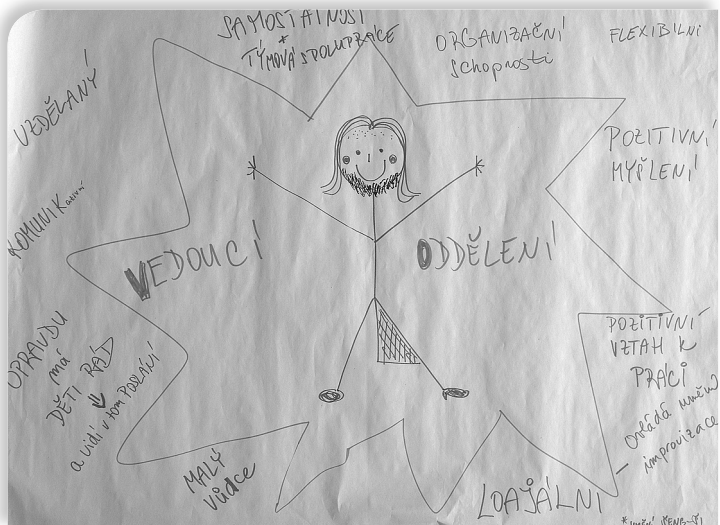 SAMOSTATNOST
*
TÝMOVÁ SPOLUPRÁCE
ORGANIZAČNÍ
schopnosti
FLEXIBILNÍ
VZDĚLANÝ
POZITIVNÍ
MYŠLENÍ
KOMUNIKativní
VEDOUCÍ
ODDĚLENÍ
OPRAVDU
má
DĚTI RÁD
a vidí v tom POSLÁNÍ
POZITIVNÍ
VZTAH K
PRÁCI
– ovládá umění
improvizace
MALÝ
vůdce
LOAJÁLNÍ